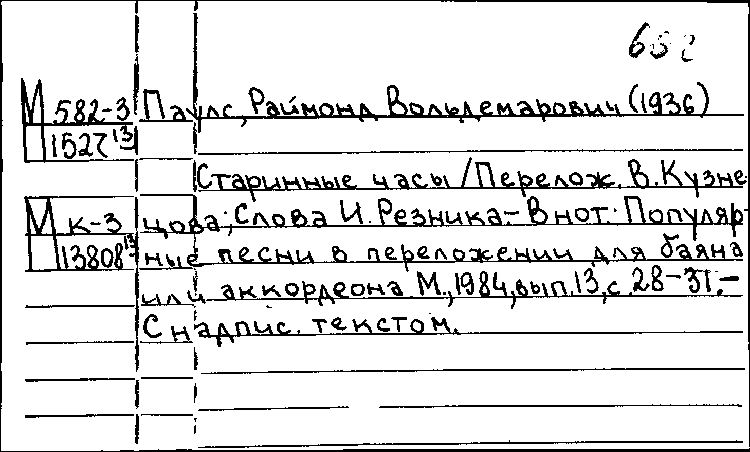 652
М 582-3 Паулс, Раймонд Вольдемарович (1936)
П 1527 13
Старинные часы / Перелож. В. Кузне-
М к-3 цова; Слова И. Резника.- В нот.: Популяр-
П 13808 13 ные песни в переложении для баяна
или аккордеона. М., 1984, вып. 13, с. 28-31.-
С надпис. текстом.